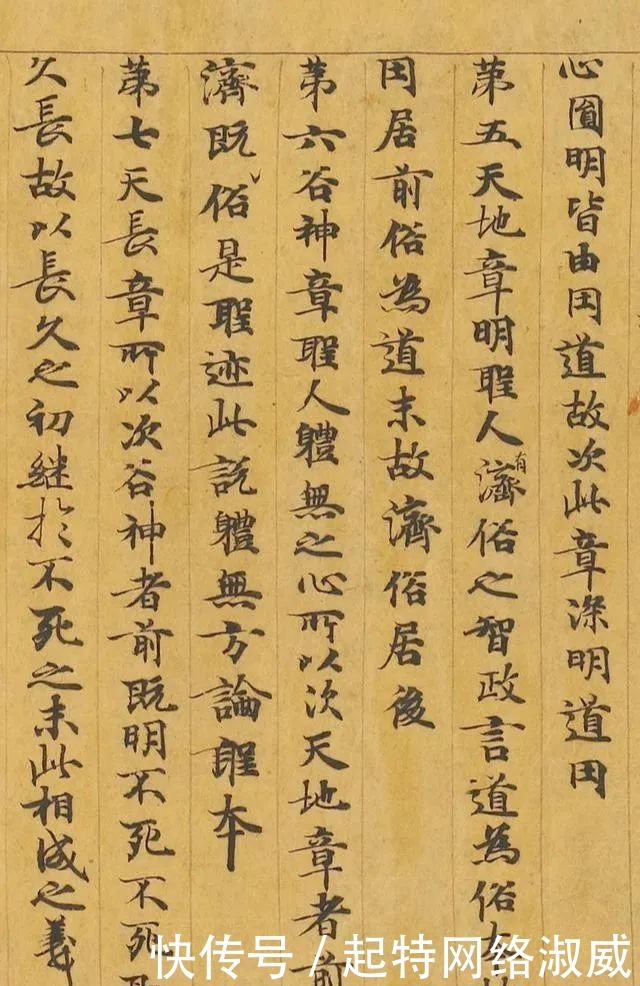 心圎明皆由用道故次此章深明道用
第五天地章明聖人有濟俗之智政言道為俗
用居前俗為道末故濟俗居後
第六谷神章聖人體無之心所以次天地章者前
濟既俗是聖迹此說體無方論聖本
第七天長章所以次谷神者前既明不死不死
久長故以長久之初継於不死之末此相成之義
快传号/起特网络淑威